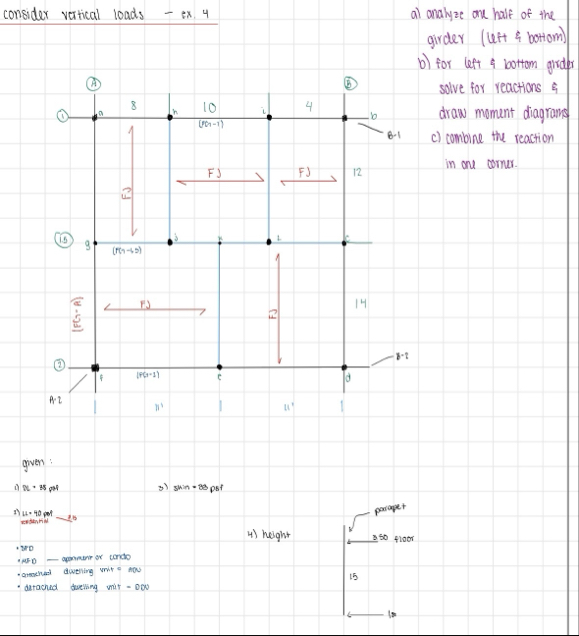 consider vertical loads - ex. 4
a) analyze one half of the
girder (left & bottom)
b) for left & bottom girder
solve for reactions &
draw moment diagrams
c) combine the reaction
in one corner.
A
B
8
10
4
1
a
h
i
b
(FG-1)
B-1
FJ
FJ
FJ
12
1.5
g
j
k
L
c
(FG-1.5)
(FG-A)
FJ
FJ
14
2
f
e
d
(FG-2)
B-2
A-2
11'
11'
given :
1) DL = 35 psf
3) skin = 33 psf
2) LL = 40 psf
residential
4) height
parapet
3.50 floor
15
• SFD
• MFD — apartment or condo
• attached dwelling unit = ADU
• detached dwelling unit - DDU